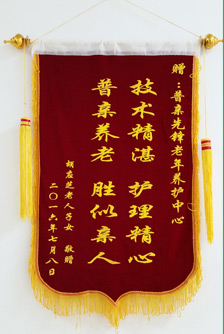 赠：普亲先锋老年养护中心
技术精湛 护理精心
普亲养老 胜似亲人
胡友芝老人子女 敬赠
二〇一六年七月八日